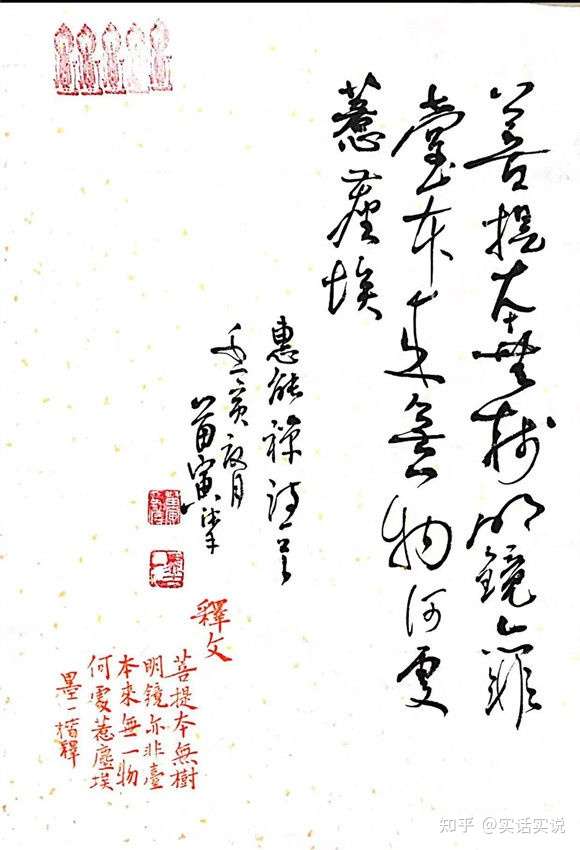 菩提本無樹明鏡亦非
臺本來無一物何處
惹塵埃
惠能禪詩一首
壬寅夏月
釋文
菩提本無樹
明鏡亦非臺
本來無一物
何處惹塵埃
墨一楷釋
知乎 @实话实说